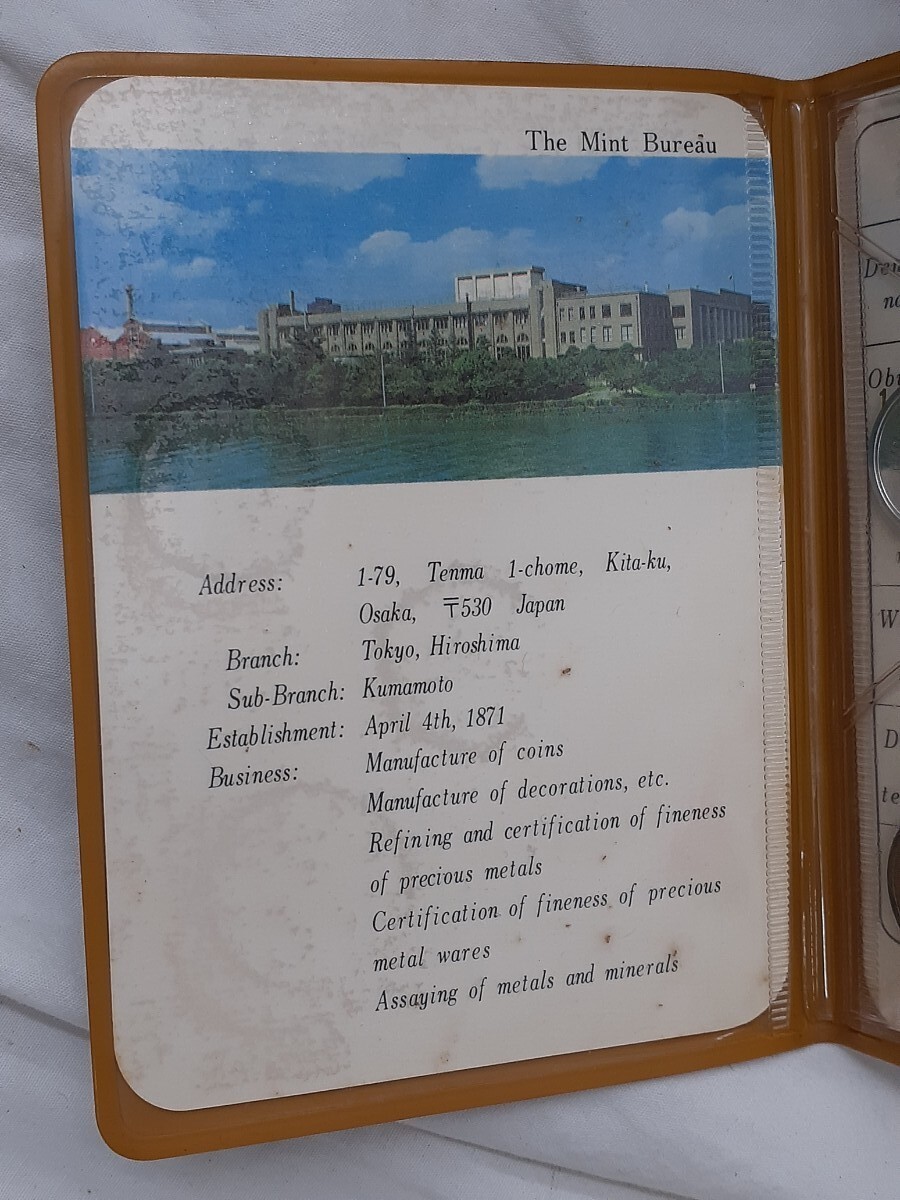 The Mint Bureau
Address: 1-79, Tenma 1-chome, Kita-ku,
Osaka, 〒530 Japan
Branch: Tokyo, Hiroshima
Sub-Branch: Kumamoto
Establishment: April 4th, 1871
Business: Manufacture of coins
Manufacture of decorations, etc.
Refining and certification of fineness
of precious metals
Certification of fineness of precious
metal wares
Assaying of metals and minerals